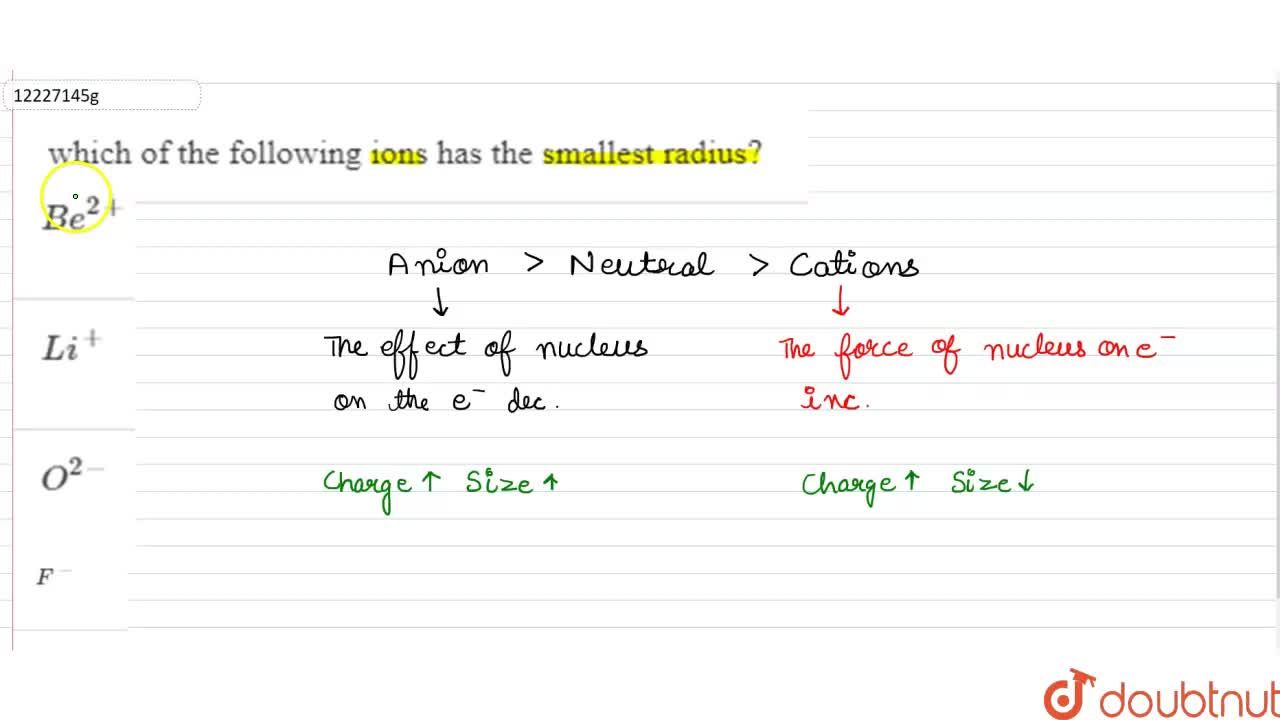 12227145g
which of the following ions has the smallest radius?
Be²⁺
Anion > Neutral > Cations
↓ ↓
Li⁺
The effect of nucleus
on the e⁻ dec.
The force of nucleus on e⁻
inc.
O²⁻
Charge ↑ Size ↑
Charge ↑ Size ↓
F⁻
doubtnut